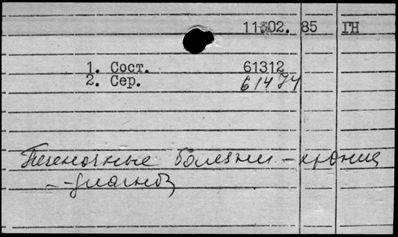 11302. 85 ГН
1. Сост. 61312
2. Сер. 61474
Печеночные болезни – хрониц
– – диагноз